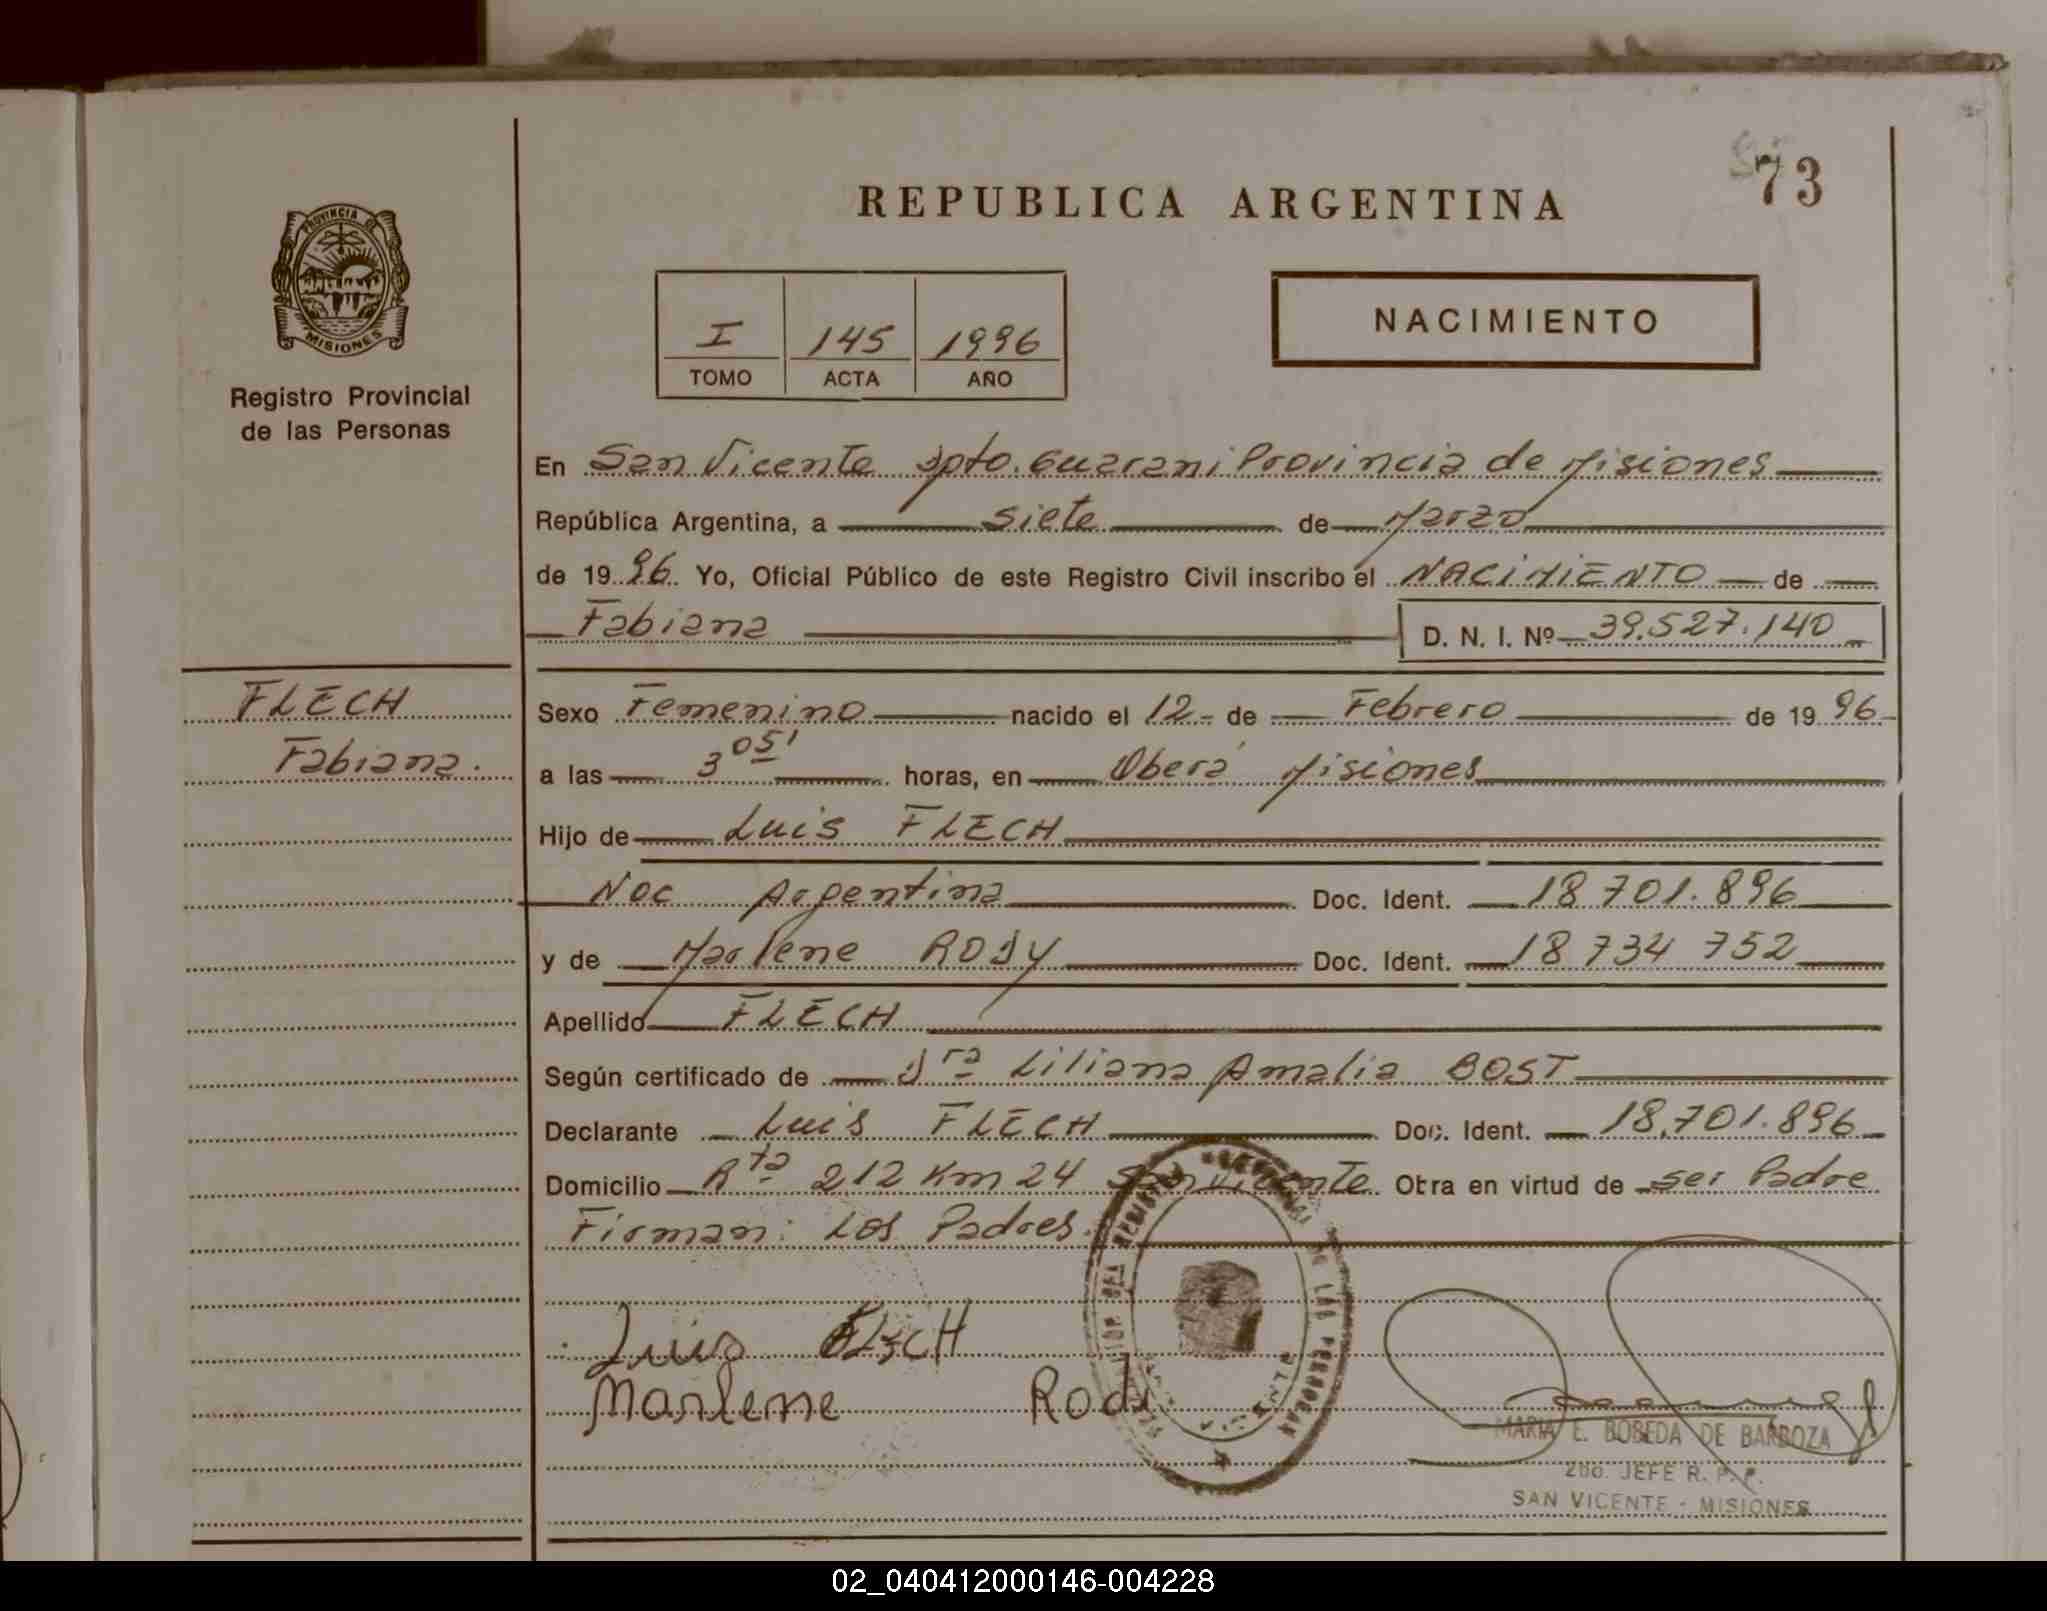 73
REPUBLICA ARGENTINA
PROVINCIA DE
MISIONES
Registro Provincial
de las Personas
I 145 1996
TOMO ACTA AÑO
NACIMIENTO
En San Vicente Dpto. Guarani Provincia de Misiones
República Argentina, a siete de Marzo
de 19 96 Yo, Oficial Público de este Registro Civil inscribo el NACIMIENTO de
Fabiana D. N. I. Nº 39.527.140
FLECH
Fabiana.
Sexo Femenino nacido el 12 de Febrero de 19 96
a las 3 05' horas, en Oberá Misiones
Hijo de Luis FLECH
Nac Argentina Doc. Ident. 18 701.896
y de Marlene RODY Doc. Ident. 18 734 752
Apellido FLECH
Según certificado de Dra Liliana Amalia BOST
Declarante Luis FLECH Doc. Ident. 18.701.896
Domicilio Rta 212 Km 24 San Vicente Otra en virtud de ser Padre
Firman: Los Padres.
Luis FLECH
Marlene Rodi
MARIA E. BOBEDA DE BARBOZA
2do. JEFE R. P. P.
SAN VICENTE - MISIONES
02_040412000146-004228